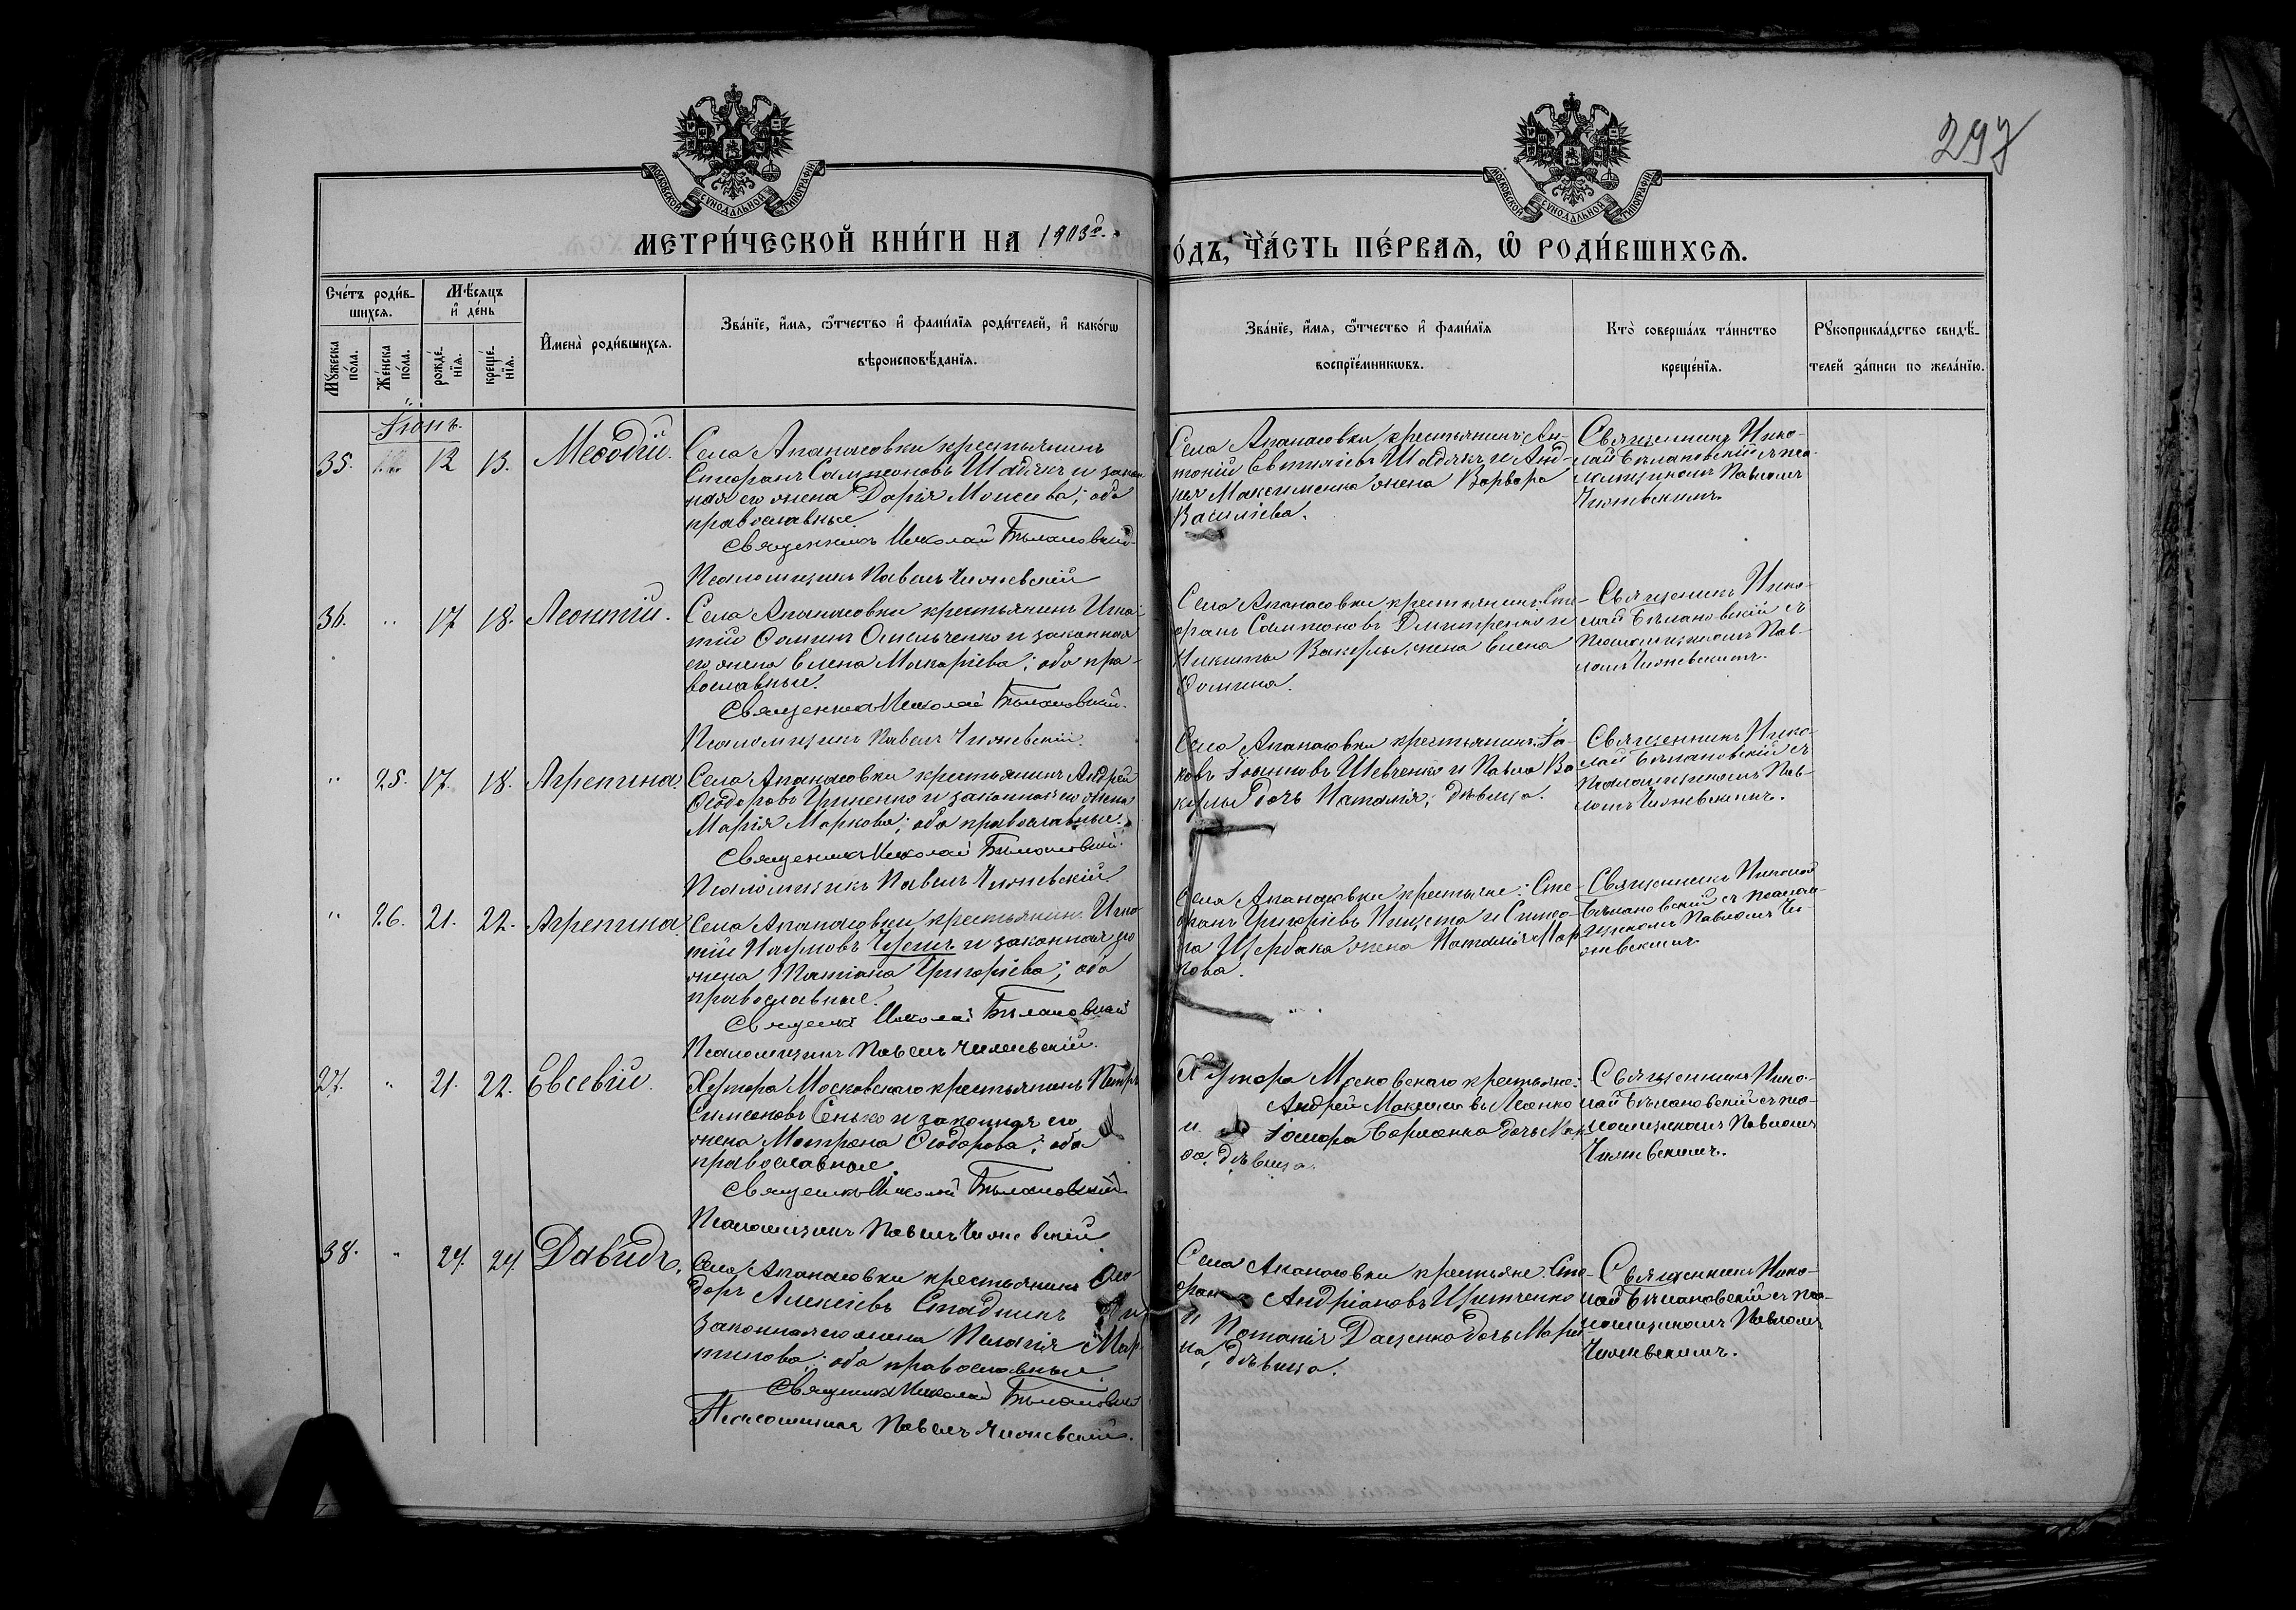 297
МОСКОВСКОЙ СѴНОДАЛЬНОЙ ТИПОГРАФІИ
МОСКОВСКОЙ СѴНОДАЛЬНОЙ ТИПОГРАФІИ
МЕТРИ́ЧЕСКОЙ КНИ́ГИ НА 1903
ГО́ДЪ, ЧА́СТЬ ПЕ́РВАѦ, Ѡ РОДИ́ВШИХСѦ.
Сче́тъ роди́в-
шихсѧ.
Му́жеска по́ла.
Же́нска по́ла.
Мѣ́сѧцъ
и де́нь
рожде́-
нїѧ.
креще́-
нїѧ.
Имена̀ роди́вшихсѧ.
Зва́нїе, и́мѧ, ѻ́тчество и фами́лїѧ роди́телей, и како́гѡ
вѣроисповѣ́данїѧ.
Зва́нїе, и́мѧ, ѻ́тчество и фами́лїѧ
воспрїе́мникѡвъ.
Кто̀ соверша́лъ та́инство
креще́нїѧ.
Рꙋкоприкла́дство свидѣ́-
телей за́писи по жела́нїю.
Іюнь.
35.
12
13.
Меѳодій.
Села Апанасовки крестьянинъ
Стефанъ Сампсоновъ Шадякъ и закон-
ная его жена Дарія Моисеева; оба
православные.
Священникъ Николай Билановскій
Псаломщикъ Павелъ Чижевскій
Села Апанасовки крестьянинъ Ан-
тоній Евтихіевъ Шадякъ и Анд-
рея Максименка жена Варвара
Василіева.
Священникъ Нико-
лай Билановскій съ пса-
ломщикомъ Павломъ
Чижевскимъ.
36.
"
17
18.
Леонтій.
Села Апанасовки крестьянинъ Игна-
тій Ѳоминъ Омельченко и законная
его жена Елена Макаріева; оба пра-
вославные.
Священникъ Николай Билановскій.
Псаломщикъ Павелъ Чижевскій.
Села Апанасовки крестьянинъ Сте-
фанъ Сампсоновъ Дмитренко и
Никиты Вакулы жена Елена
Ѳомина.
Священникъ Нико-
лай Билановскій съ
псаломщикомъ Пав-
ломъ Чижевскимъ.
"
25.
17.
18.
Агрепина.
Села Апанасовки крестьянинъ Андрей
Ѳеодоровъ Гриненко и законная его жена
Марія Маркова; оба православные.
Священникъ Николай Билановскій.
Псаломщикъ Павелъ Чижевскій.
Села Апанасовки крестьянинъ Іа-
ковъ Іоанновъ Шевченко и Павла Ва-
кулы дочь Наталія, дѣвица.
Священникъ Нико-
лай Билановскій съ
псаломщикомъ Пав-
ломъ Чижевскимъ.
"
26.
21.
22.
Агрепина.
Села Апанасовки крестьянинъ Игна-
тій Наумовъ и законная его
жена Татіана Григоріева; оба
православные.
Николай Билановскій
Псаломщикъ Павелъ Чижевскій.
Села Апанасовки крестьяне: Сте-
фанъ Григоріевъ и Симео-
на Щербака жена Наталія Мар-
кова.
Священникъ Николай
Билановскій съ псалом-
щикомъ Павломъ Чи-
жевскимъ.
37.
"
21.
22.
Евсевій.
Хутора Московскаго крестьянинъ Петръ
Симеоновъ Сенько и законная его
жена Матрона Ѳеодорова; оба
православные.
Николай Билановскій
Псаломщикъ Павелъ Чижевскій
Хутора Московскаго крестьяне:
Андрей Лженко
и дочь
дѣвица.
Священникъ Нико-
лай Билановскій съ пса-
ломщикомъ Павломъ
Чижевскимъ.
38.
"
24.
24.
Давидъ.
Села Апанасовки крестьянинъ Ѳео-
доръ Алексіевъ Стадникъ и
законная его жена Пелагія Мар-
тинова; оба православные.
Священникъ Николай Билановскій
Псаломщикъ Павелъ Чижевскій.
Села Апанасовки крестьяне: Сте-
фанъ Андріановъ
и Потапія Даценка дочь Мари-
на, дѣвица.
Священникъ Нико-
лай Билановскій съ пса-
ломщикомъ Павломъ
Чижевскимъ.